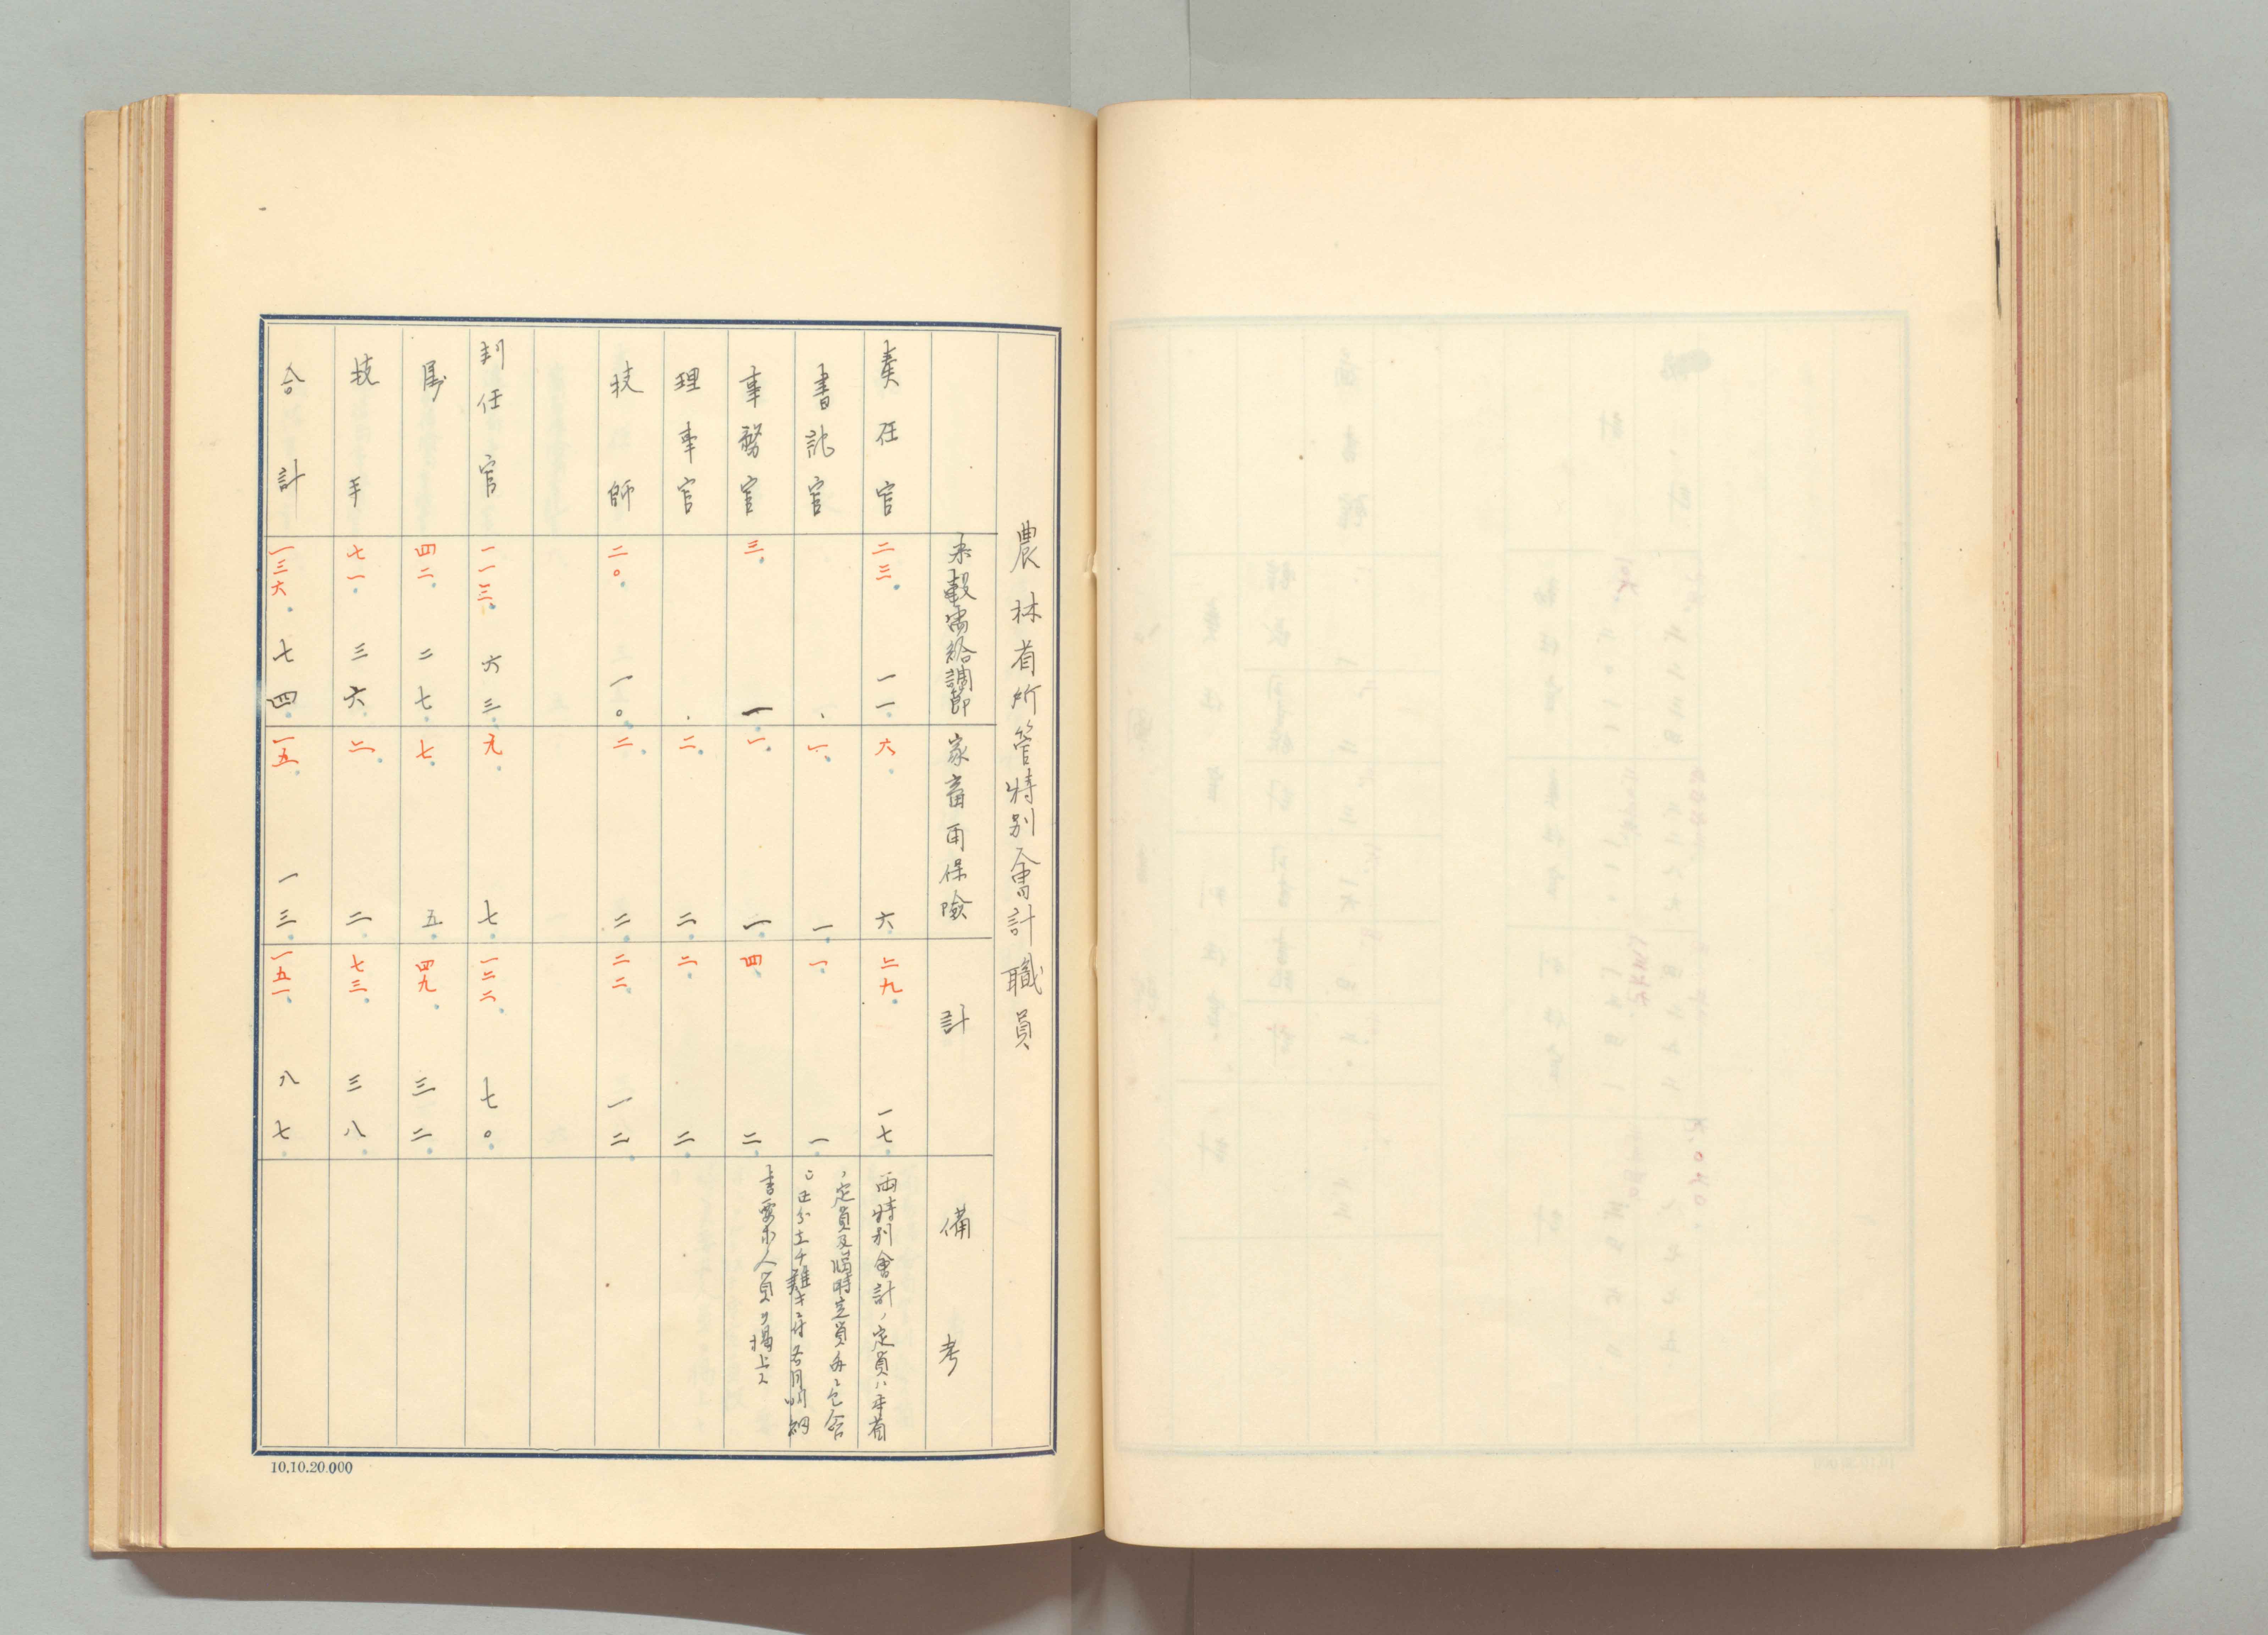 農林省所管特別會計職員
米穀需給調節 家畜再保險 計 備考
奏任官 二三 一一 六 六 二九 一七 兩特別會計ノ定員ハ本省
書記官 一 一 一 一 ノ定員及臨時定員 包含
事務官 三 一 一 一 四 二 シ区分立チ難キニ付
書要求人員ヲ揭上ス
理事官 二 二 二 二
技師 二〇 一〇 二 二 二二 一二
判任官 一一三 六三 九 七 一二二 七〇
属 四二 二七 七 五 四九 三二
技手 七一 三六 二 二 七三 三八
合計 一三六 七四 一五 一三 一五一 八七
10.10.20.000